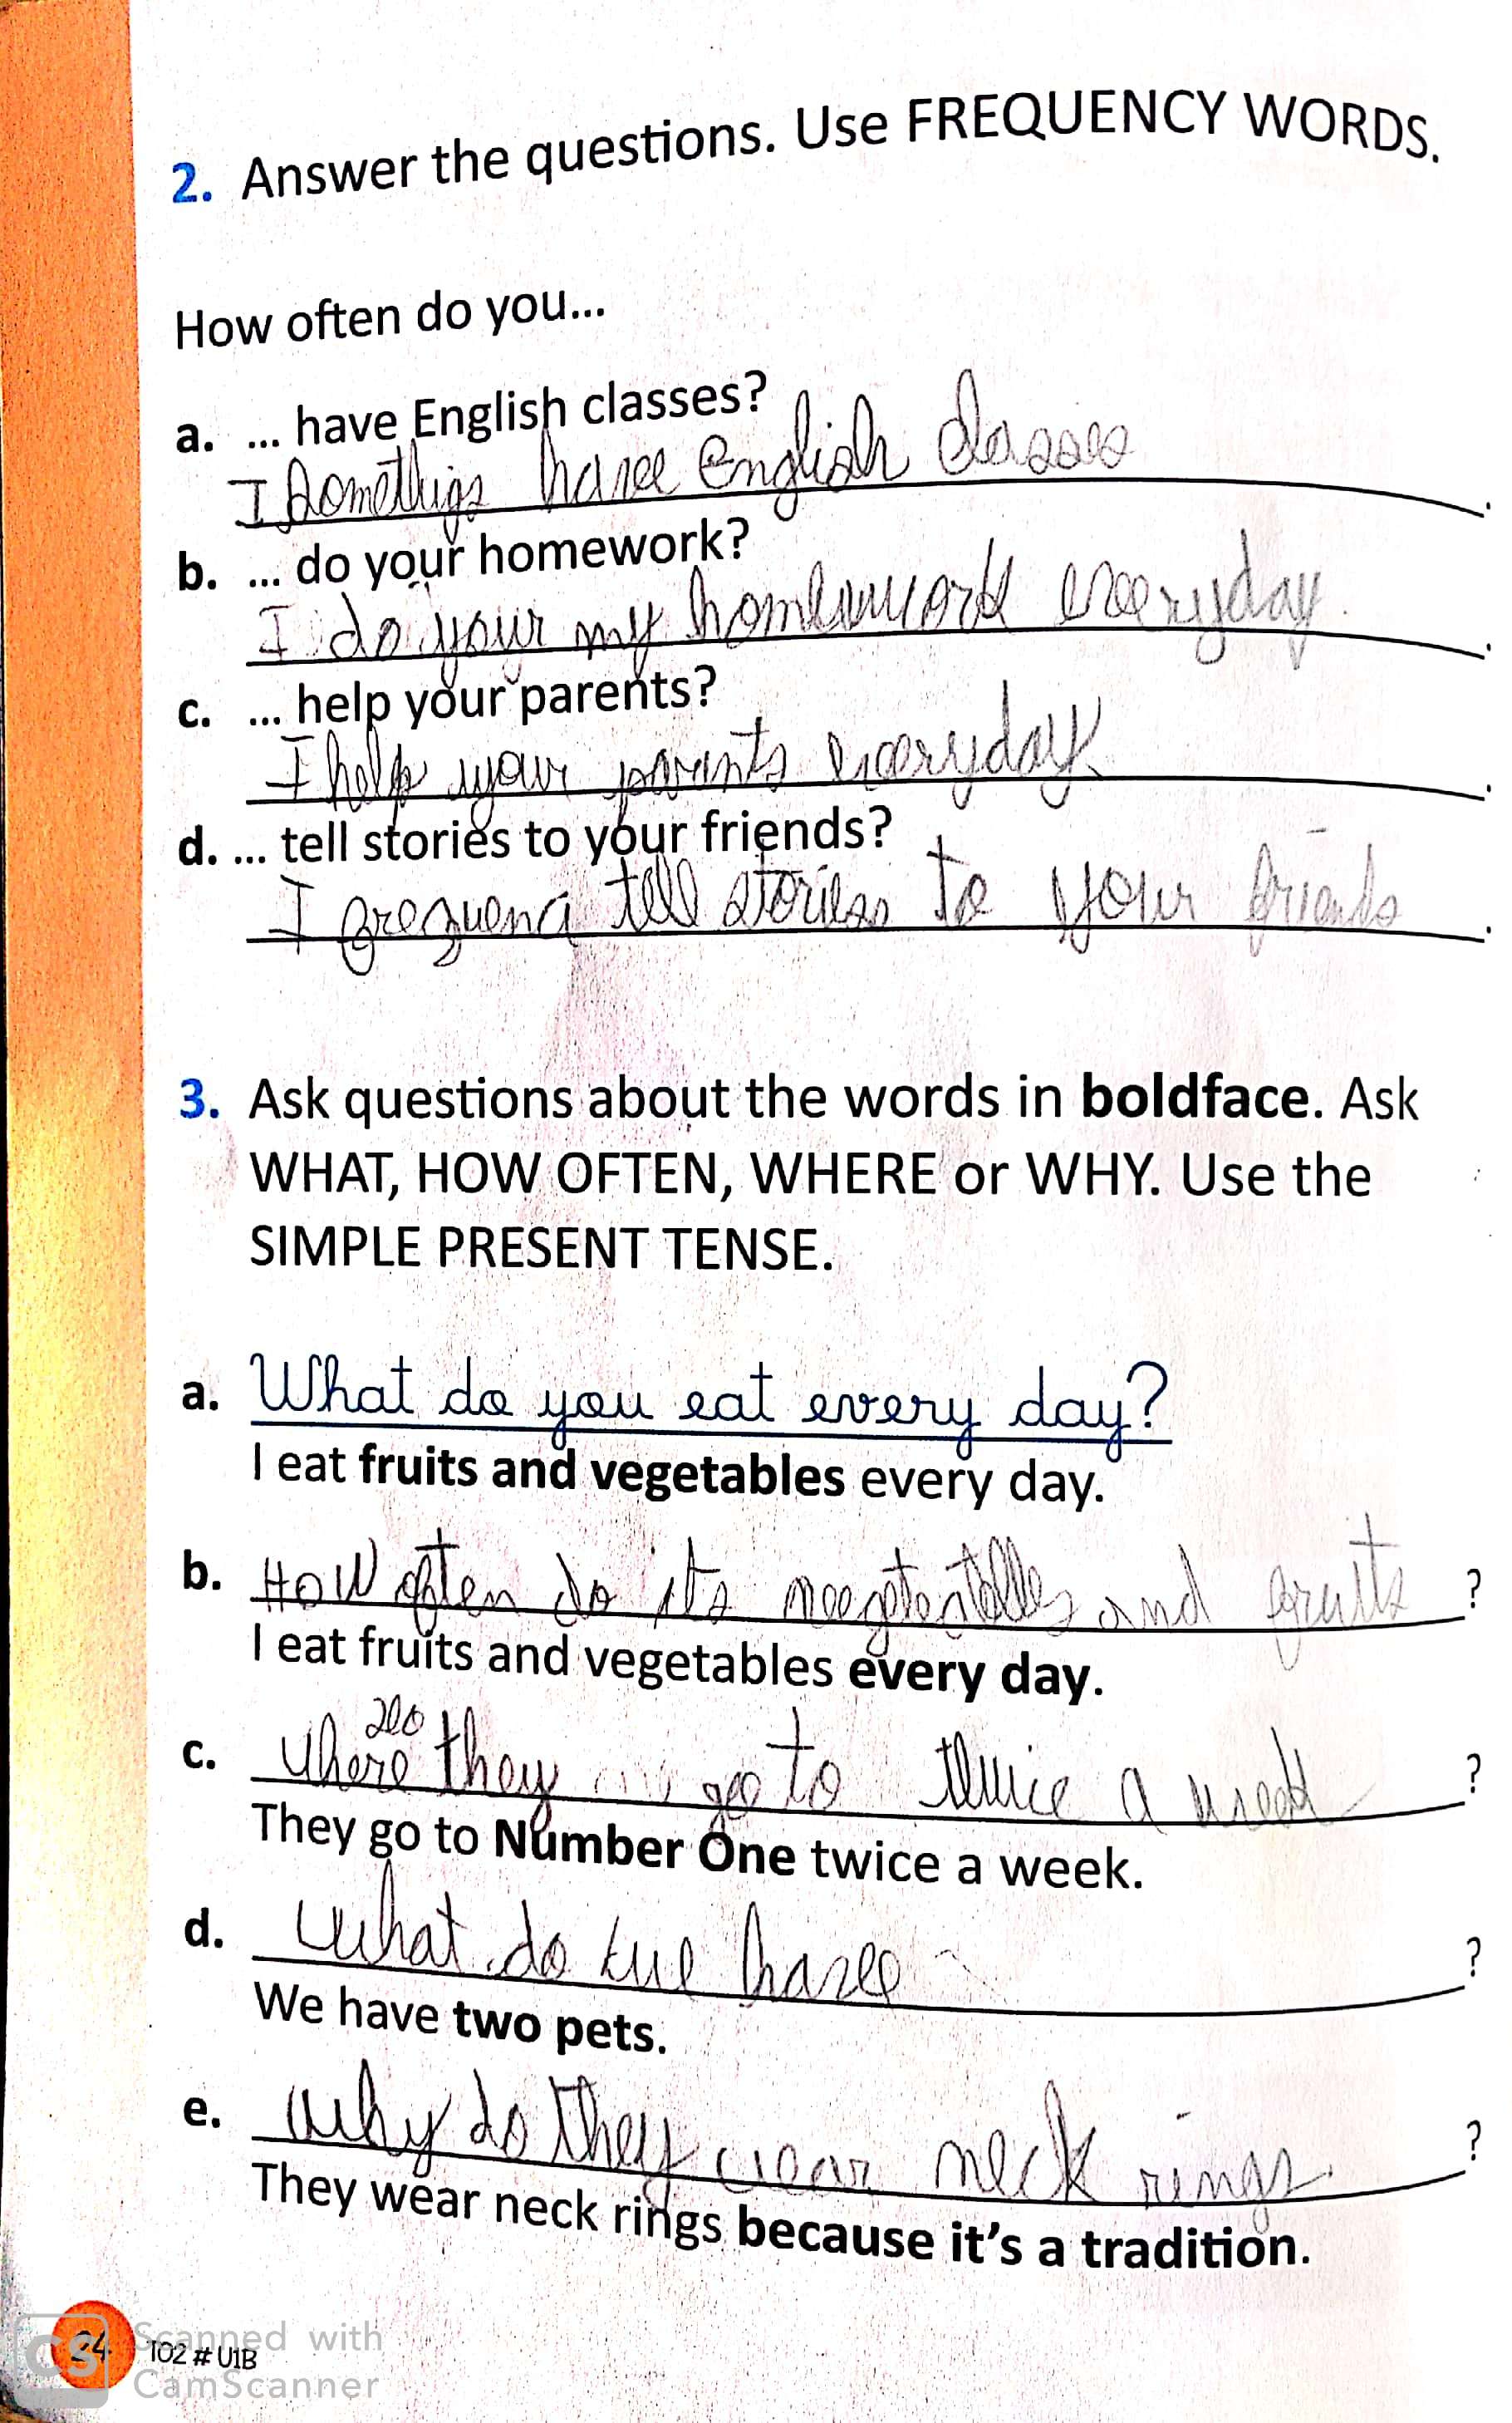 2. Answer the questions. Use FREQUENCY WORDS.
How often do you...
a. ... have English classes?
I Somethings have English classes .
b. ... do your homework?
I do your my homework everyday .
c. ... help your parents?
I help your parents everyday .
d. ... tell stories to your friends?
I frequenci tell stories to your friends .
3. Ask questions about the words in boldface. Ask
WHAT, HOW OFTEN, WHERE or WHY. Use the
SIMPLE PRESENT TENSE.
a. What do you eat every day?
I eat fruits and vegetables every day.
b. How often do its and fruits ?
I eat fruits and vegetables every day.
do
c. where they go to twice a week ?
They go to Number One twice a week.
d. what do we have ?
We have two pets.
e. why do they wear neck rings ?
They wear neck rings because it's a tradition.
24 T02 # U1B
CS Scanned with
CamScanner